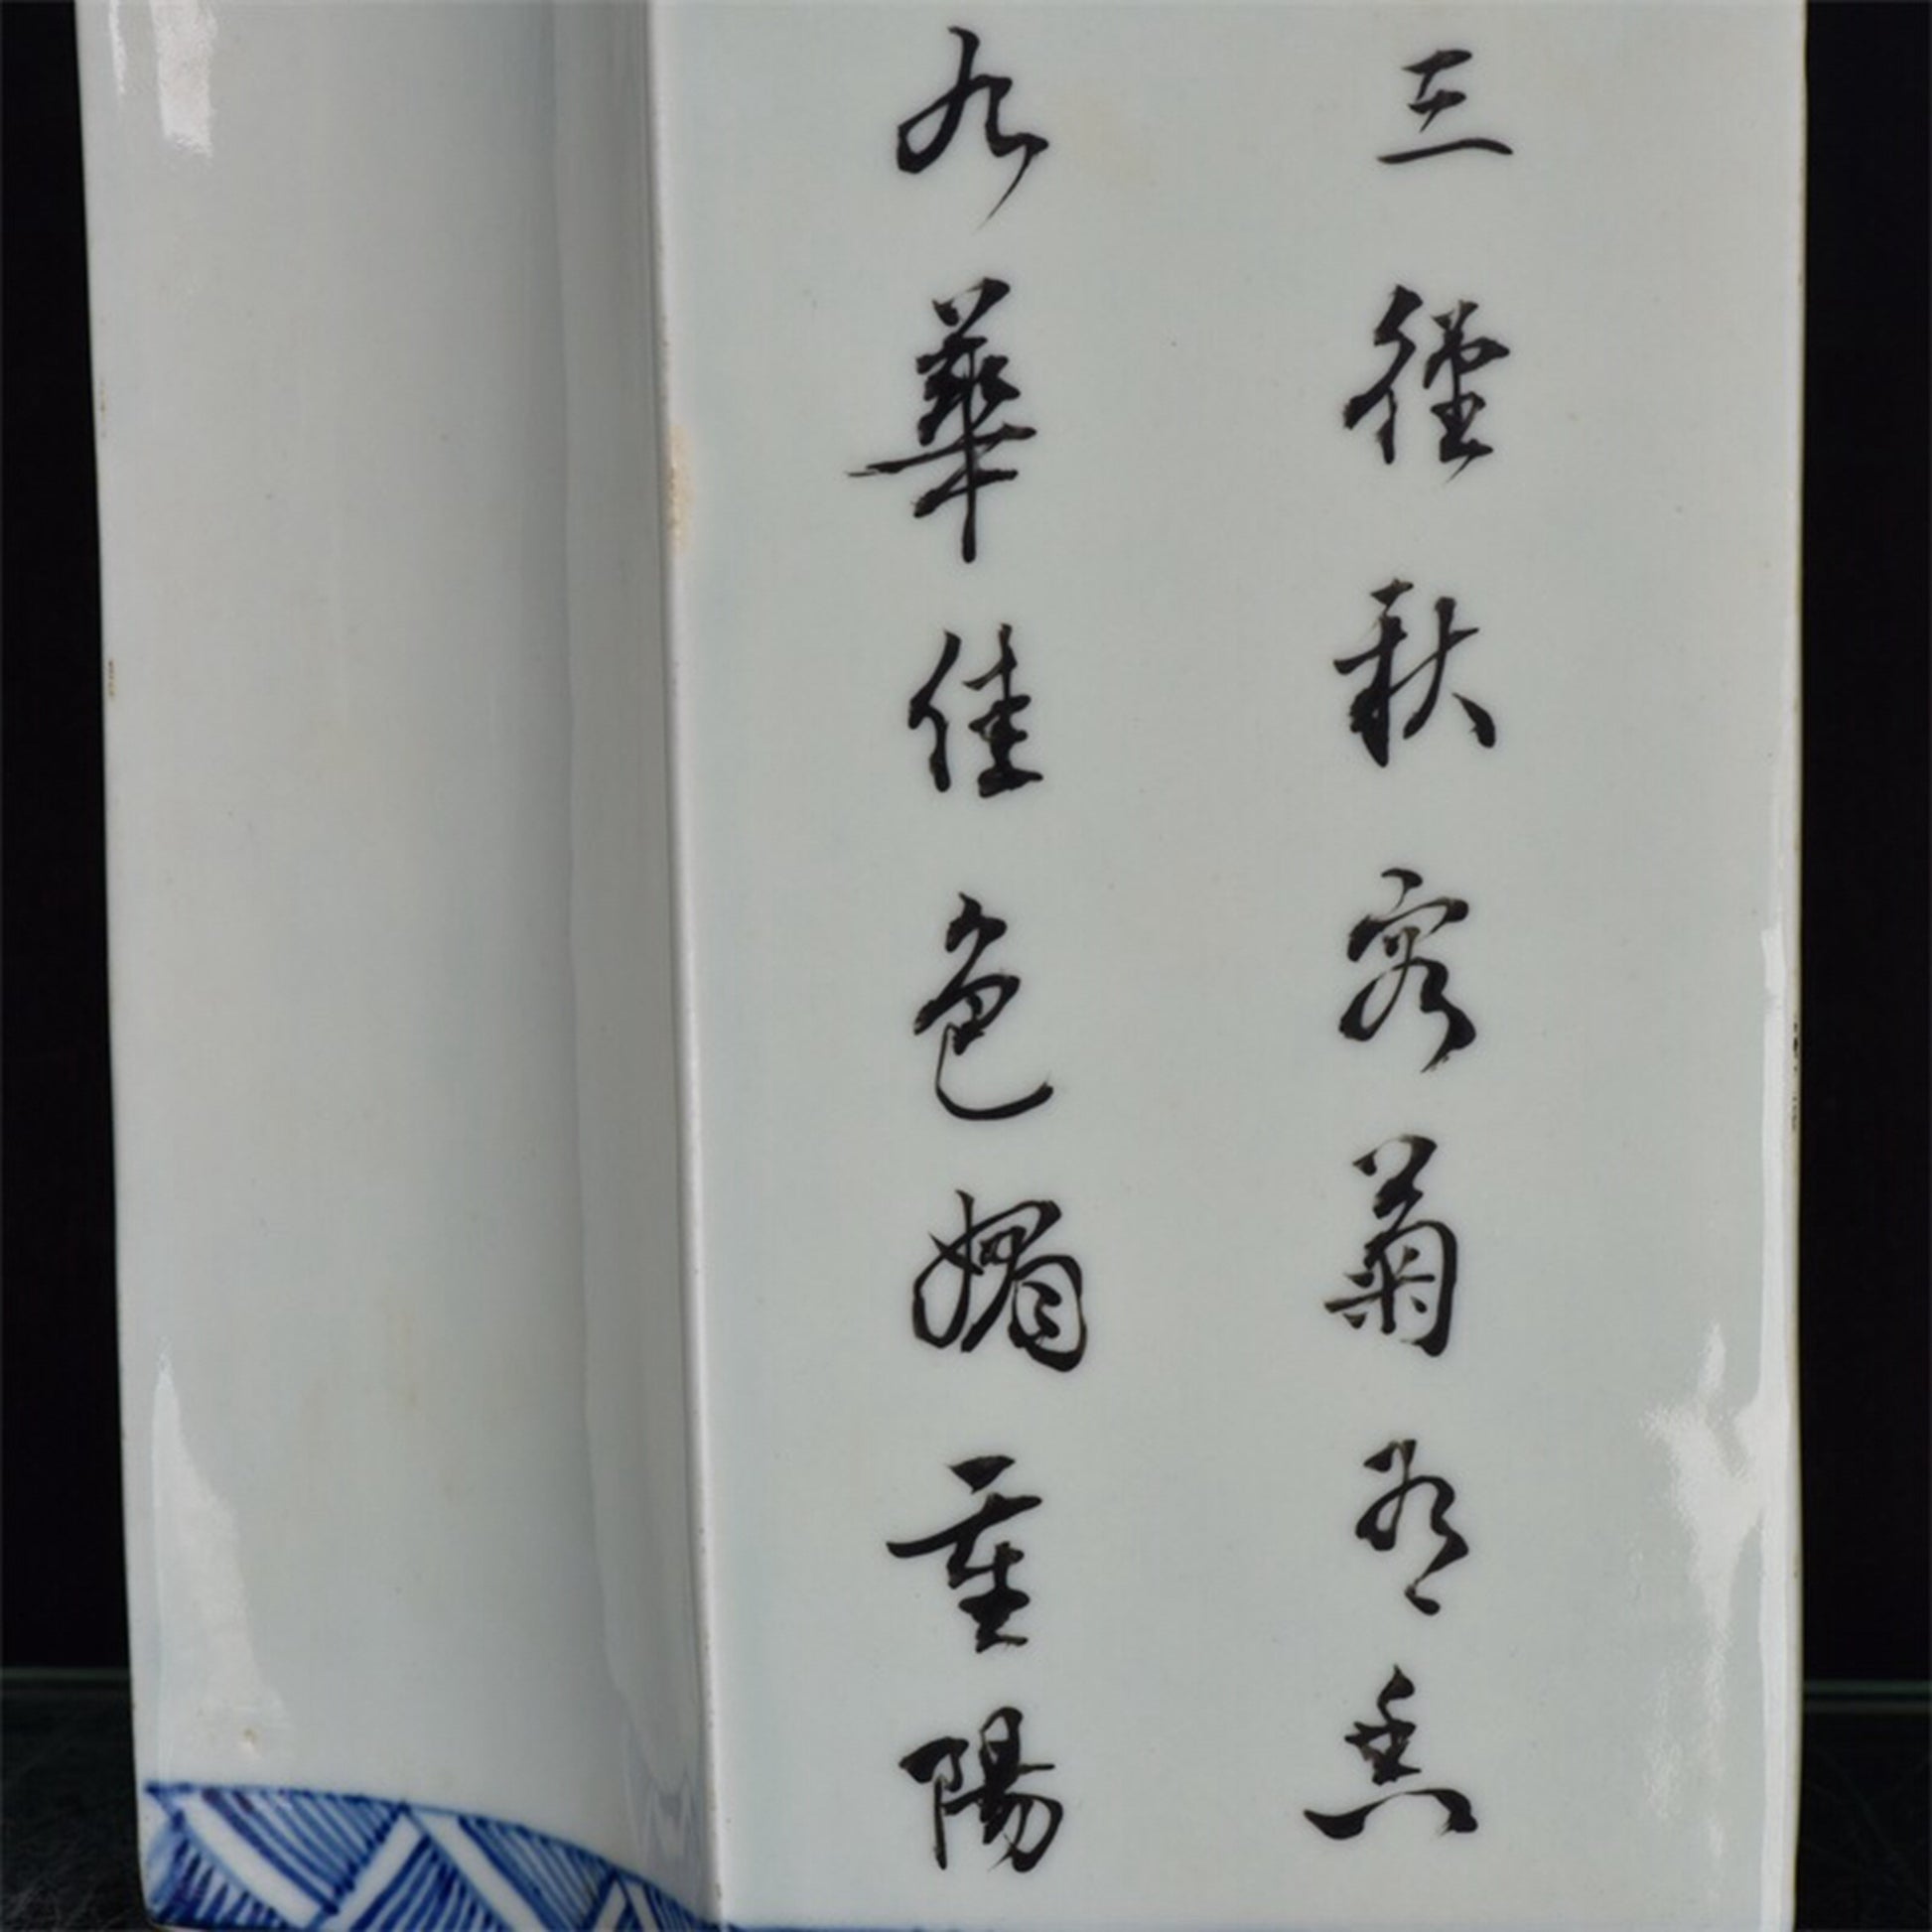 三徑秋容菊
九華佳色媚重陽